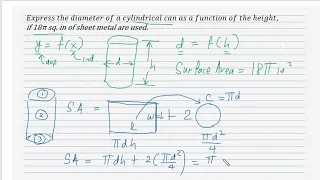 Express the diameter of a cylindrical can as a function of the height,
if 18π sq. in of sheet metal are used.
y = f(x)
dep. ind.
d
h
d = f(h)
Surface Area = 18π in²
1
2
3
SA =
l
w
+ 2
C = πd
πdh
πd²/4
SA = πdh + 2(πd²/4) = π